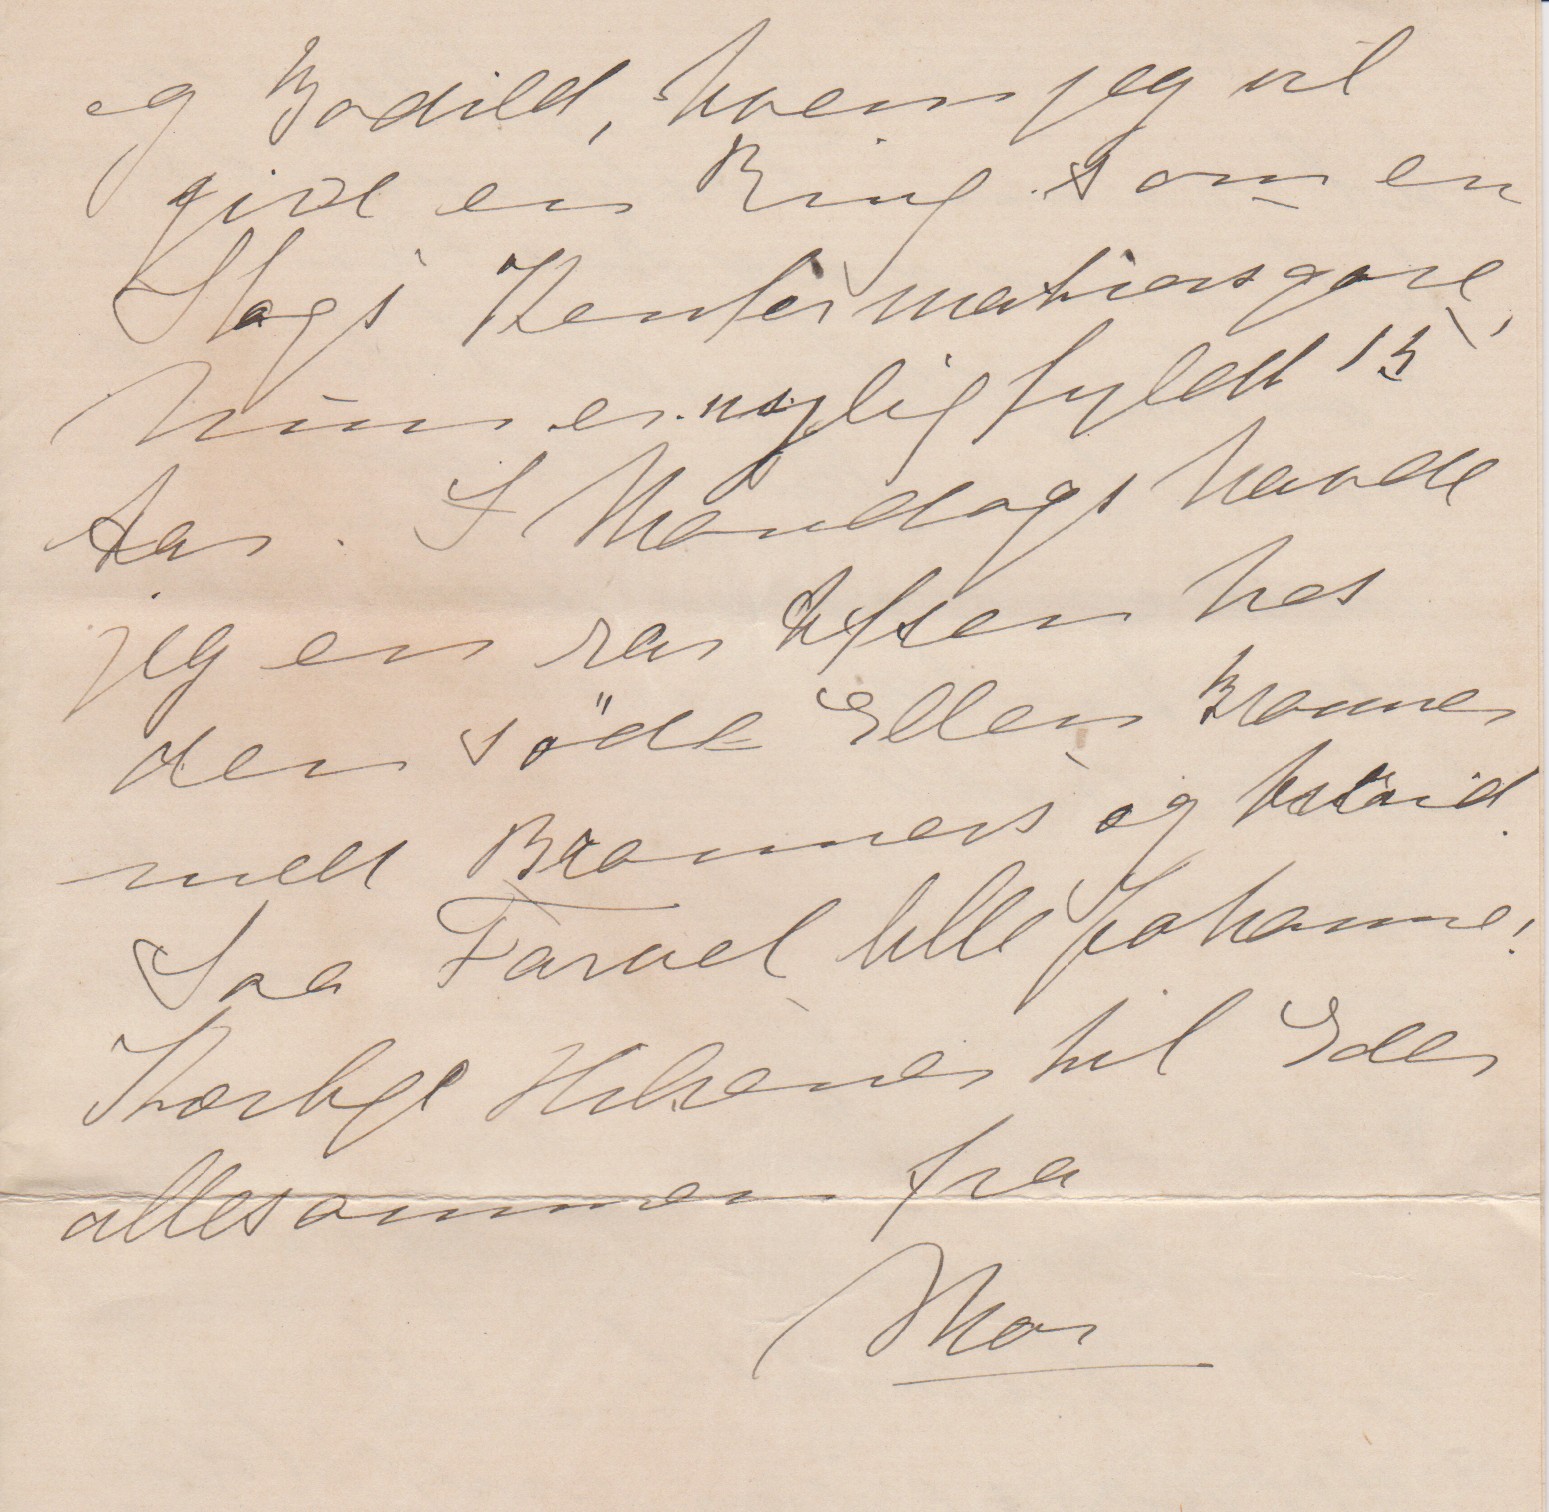 og Bodild, hvem jeg vil
give en Ring som en
Slags Konfirmationsgave,
hun er nylig fyldt 15
Aar. I Mandags havde
jeg en rar Aften hos
den söde Ellen Branner
med Branners og
Saa Farvel lille Johanne!
Kærlige Hilsener til Eder
allesammen fra
Mor